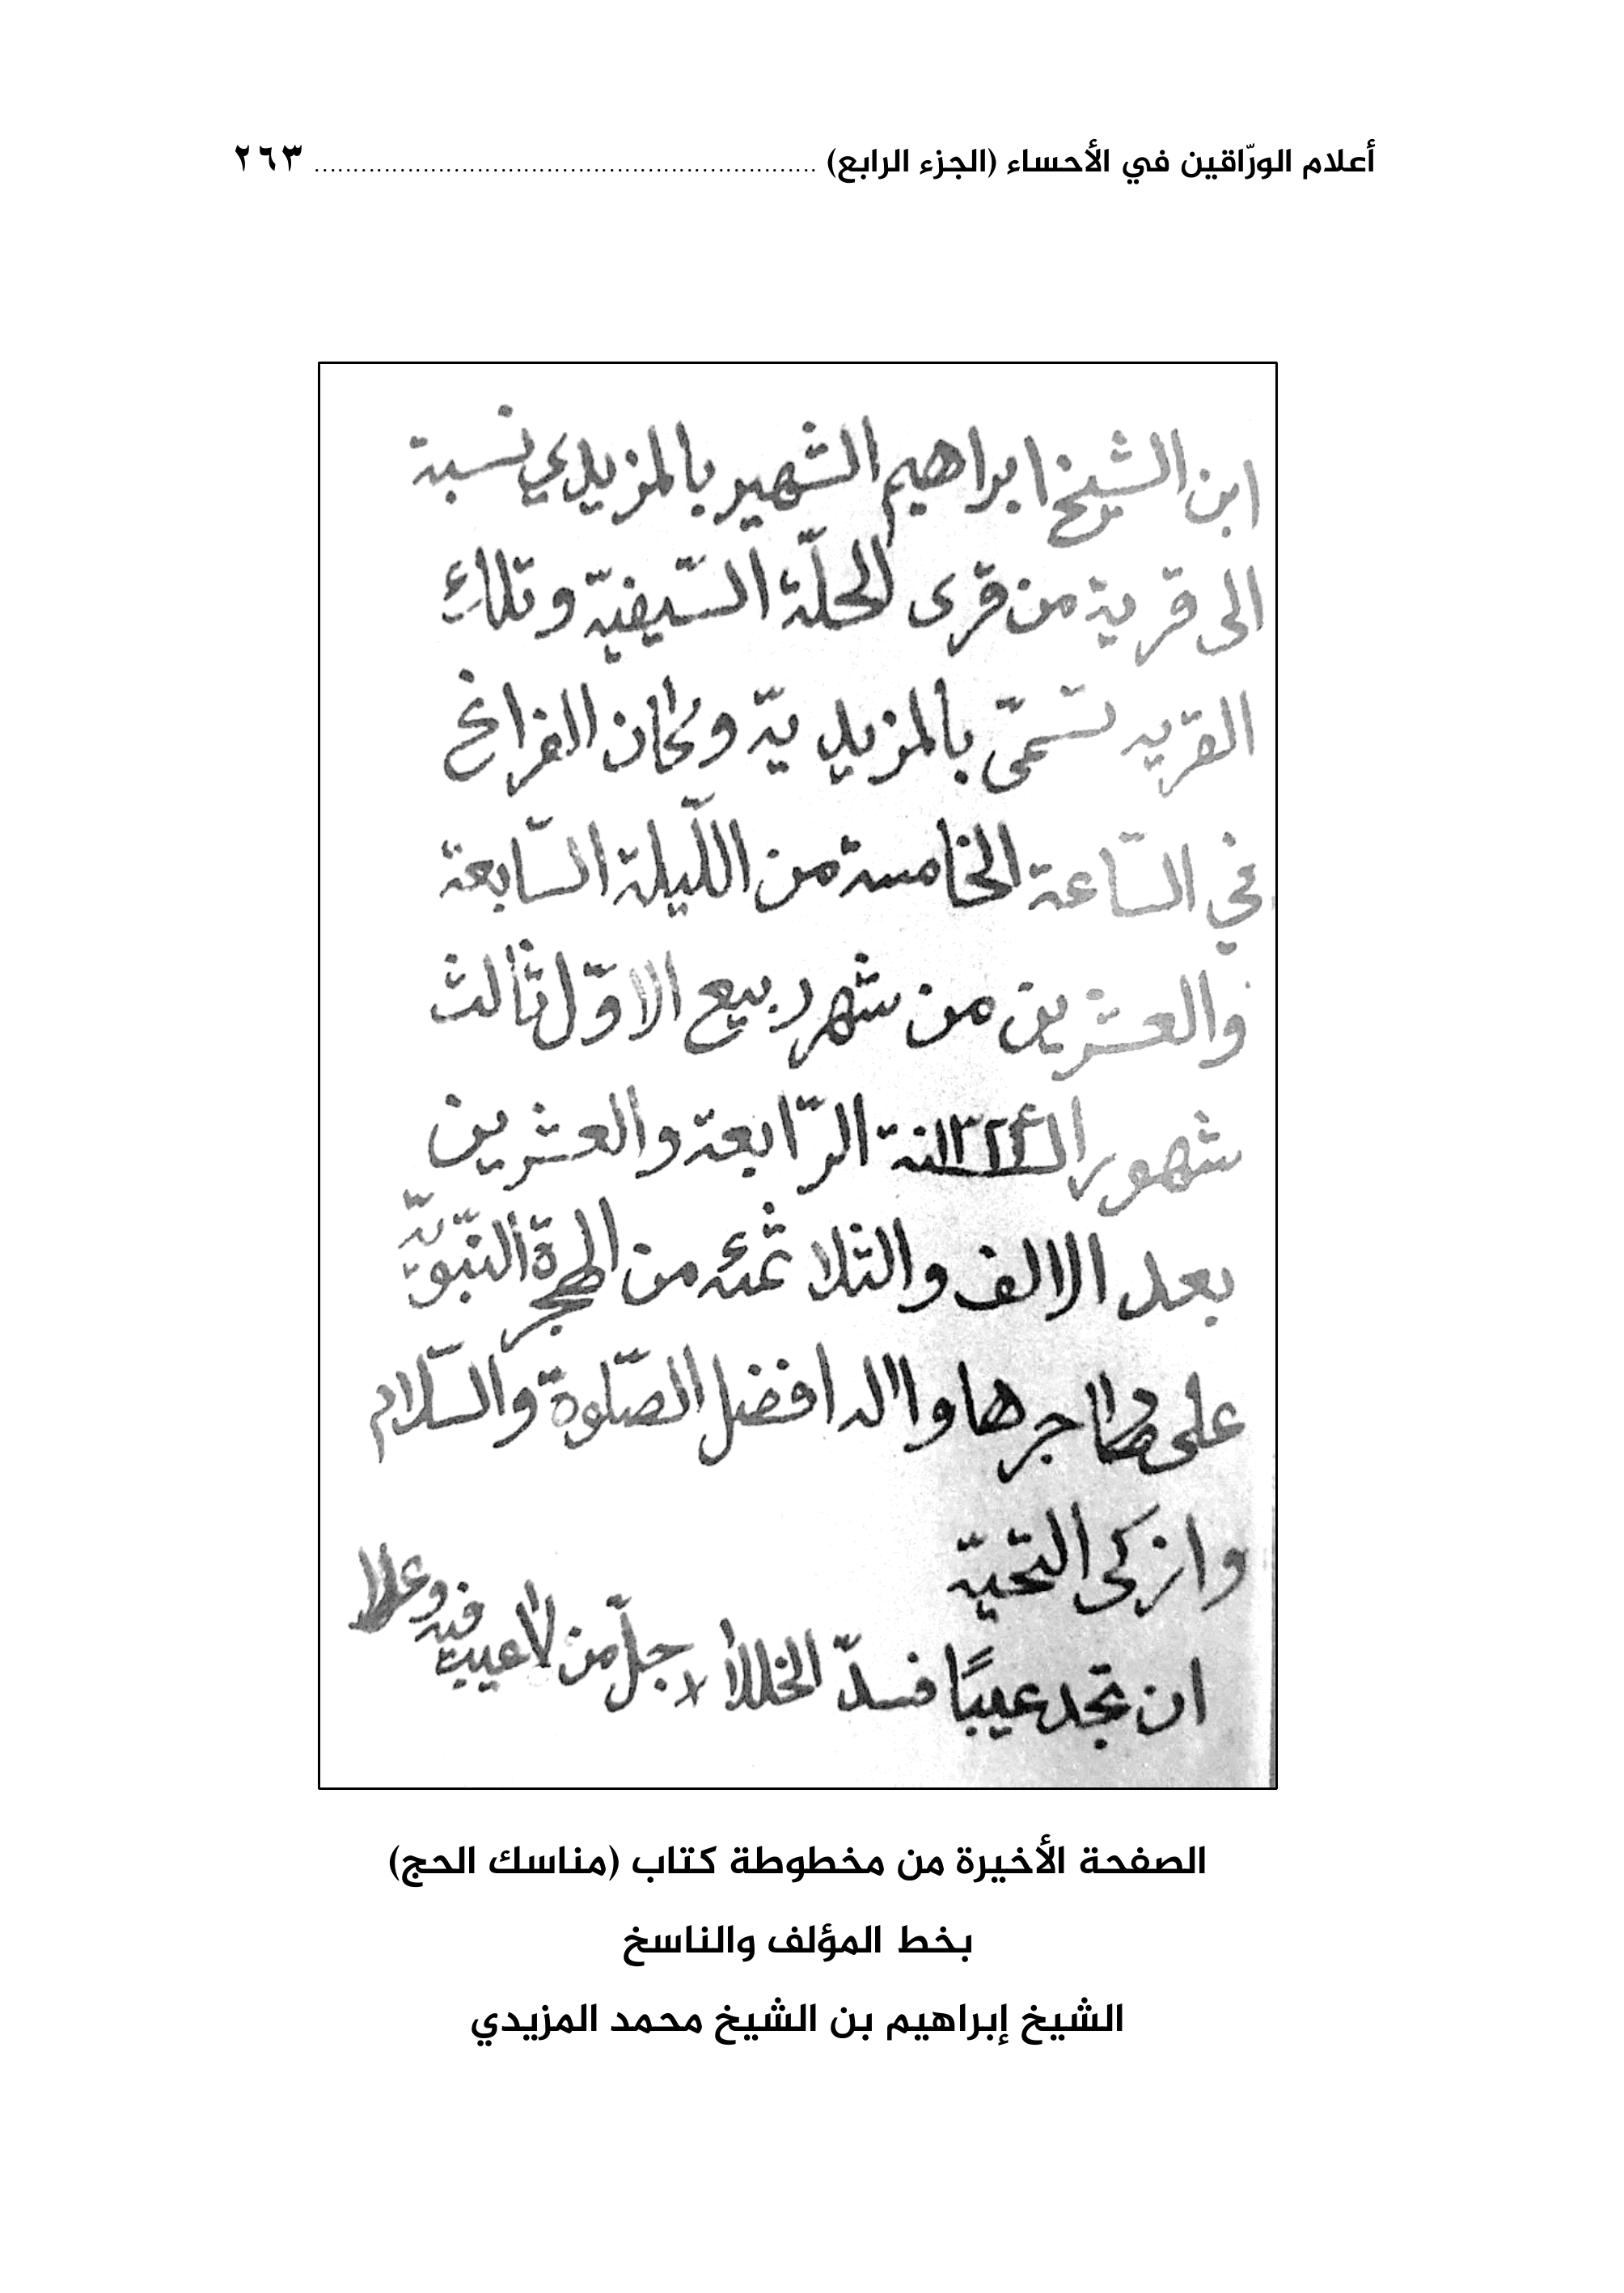 أعلام الورّاقين في الأحساء (الجزء الرابع) ................................................................ ٢٦٣
ابن الشيخ ابراهيم الشهير بالمزيدي نسبة
الى قرية من قرى الحلّة السّيفيّة وتلك
القريه تسمّى بالمزيديّة وكان الفراغ
في السّاعة الخامسة من اللّيلة السّابعة
والعشرين من شهر ربيع الاوّل ثالث
شهور السنة ١٣٢٤ الرّابعة والعشرين
بعد الالف والثلاثمئه من الهجرة النّبويّة
على مهاجرها واله افضل الصّلوة والسّلام
وازكى التحيّة
ان تجد عيبًا فسدّ الخللا جلّ من لا عيب فيه وعلا
الصفحة الأخيرة من مخطوطة كتاب (مناسك الحج)
بخط المؤلف والناسخ
الشيخ إبراهيم بن الشيخ محمد المزيدي